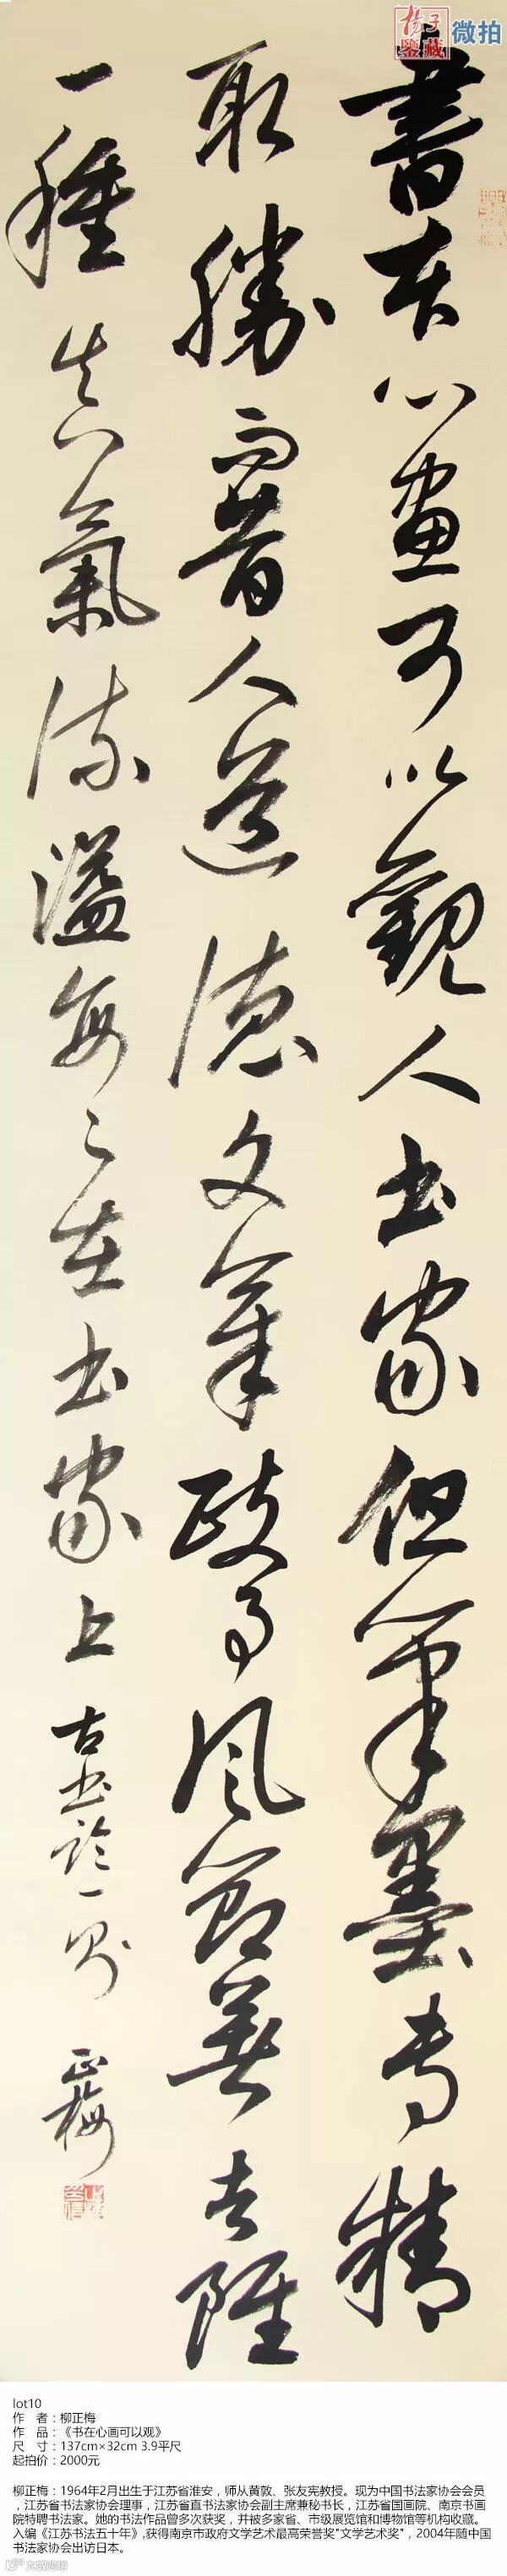 楊子鑒藏 微拍
書本心画可以觀人书家但筆墨专精
取勝而昔人道德文章政事风節著者雖
一種真氣流溢每々在书家上 古书論一则 正梅
lot10
作 者：柳正梅
作 品：《书在心画可以观》
尺 寸：137cm×32cm 3.9平尺
起拍价：2000元
柳正梅：1964年2月出生于江苏省淮安，师从黄敦、张友宪教授。现为中国书法家协会会员
，江苏省书法家协会理事，江苏省直书法家协会副主席兼秘书长，江苏省国画院、南京书画
院特聘书法家。她的书法作品曾多次获奖，并被多家省、市级展览馆和博物馆等机构收藏。
入编《江苏书法五十年》,获得南京市政府文学艺术最高荣誉奖"文学艺术奖"，2004年随中国
书法家协会出访日本。